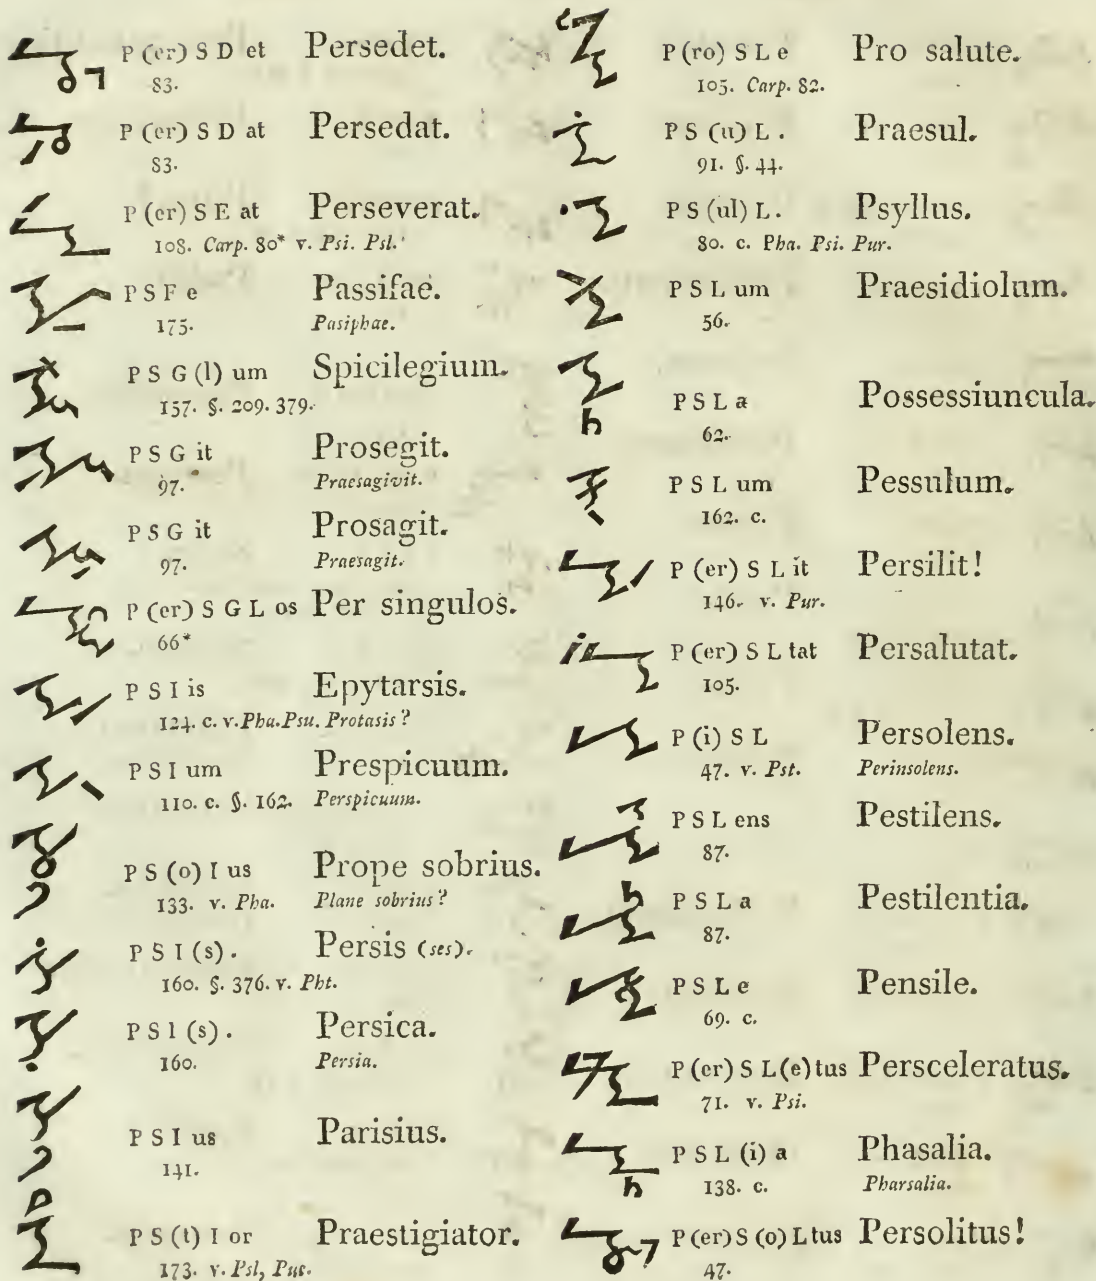 P (er) S D et Persedet.
83.
P (er) S D at Persedat.
83.
P (er) S E at Perseverat.
108. Carp. 80* v. Psi. Psl.
P S F e Passifae.
175. Pasiphae.
P S G (l) um Spicilegium.
157. §. 209. 379.
P S G it Prosegit.
97. Praesagivit.
P S G it Prosagit.
97. Praesagit.
P (er) S G L os Per singulos.
66*
P S I is Epytarsis.
124. c. v. Pha. Psu. Protasis?
P S I um Prespicuum.
110. c. §. 162. Perspicuum.
P S (o) I us Prope sobrius.
133. v. Pha. Plane sobrius?
P S I (s). Persis (ses).
160. §. 376. v. Pht.
P S I (s). Persica.
160. Persia.
P S I us Parisius.
141.
P S (t) I or Praestigiator.
173. v. Psl, Puc.
P (ro) S L e Pro salute.
105. Carp. 82.
P S (u) L. Praesul.
91. §. 44.
P S (ul) L. Psyllus.
80. c. Pha. Psi. Pur.
P S L um Praesidiolum.
56.
P S L a Possessiuncula.
62.
P S L um Pessulum.
162. c.
P (er) S L it Persilit!
146. v. Pur.
P (er) S L tat Persalutat.
105.
P (i) S L Persolens.
47. v. Pst. Perinsolens.
P S L ens Pestilens.
87.
P S L a Pestilentia.
87.
P S L e Pensile.
69. c.
P (er) S L (e) tus Persceleratus.
71. v. Psi.
P S L (i) a Phasalia.
138. c. Pharsalia.
P (er) S (o) L tus Persolitus!
47.